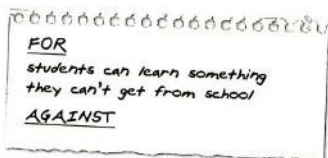 FOR
students can learn something
they can't get from school
AGAINST